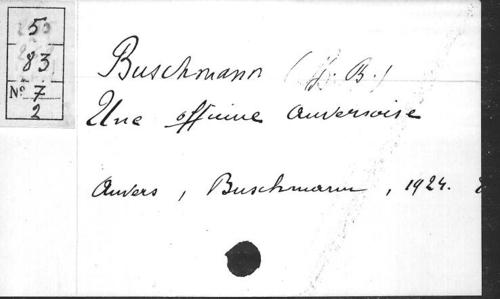 5
83
Nº 7
2
Buschmann (J. B.)
Une officine anversoise
Anvers, Buschmann, 1924.